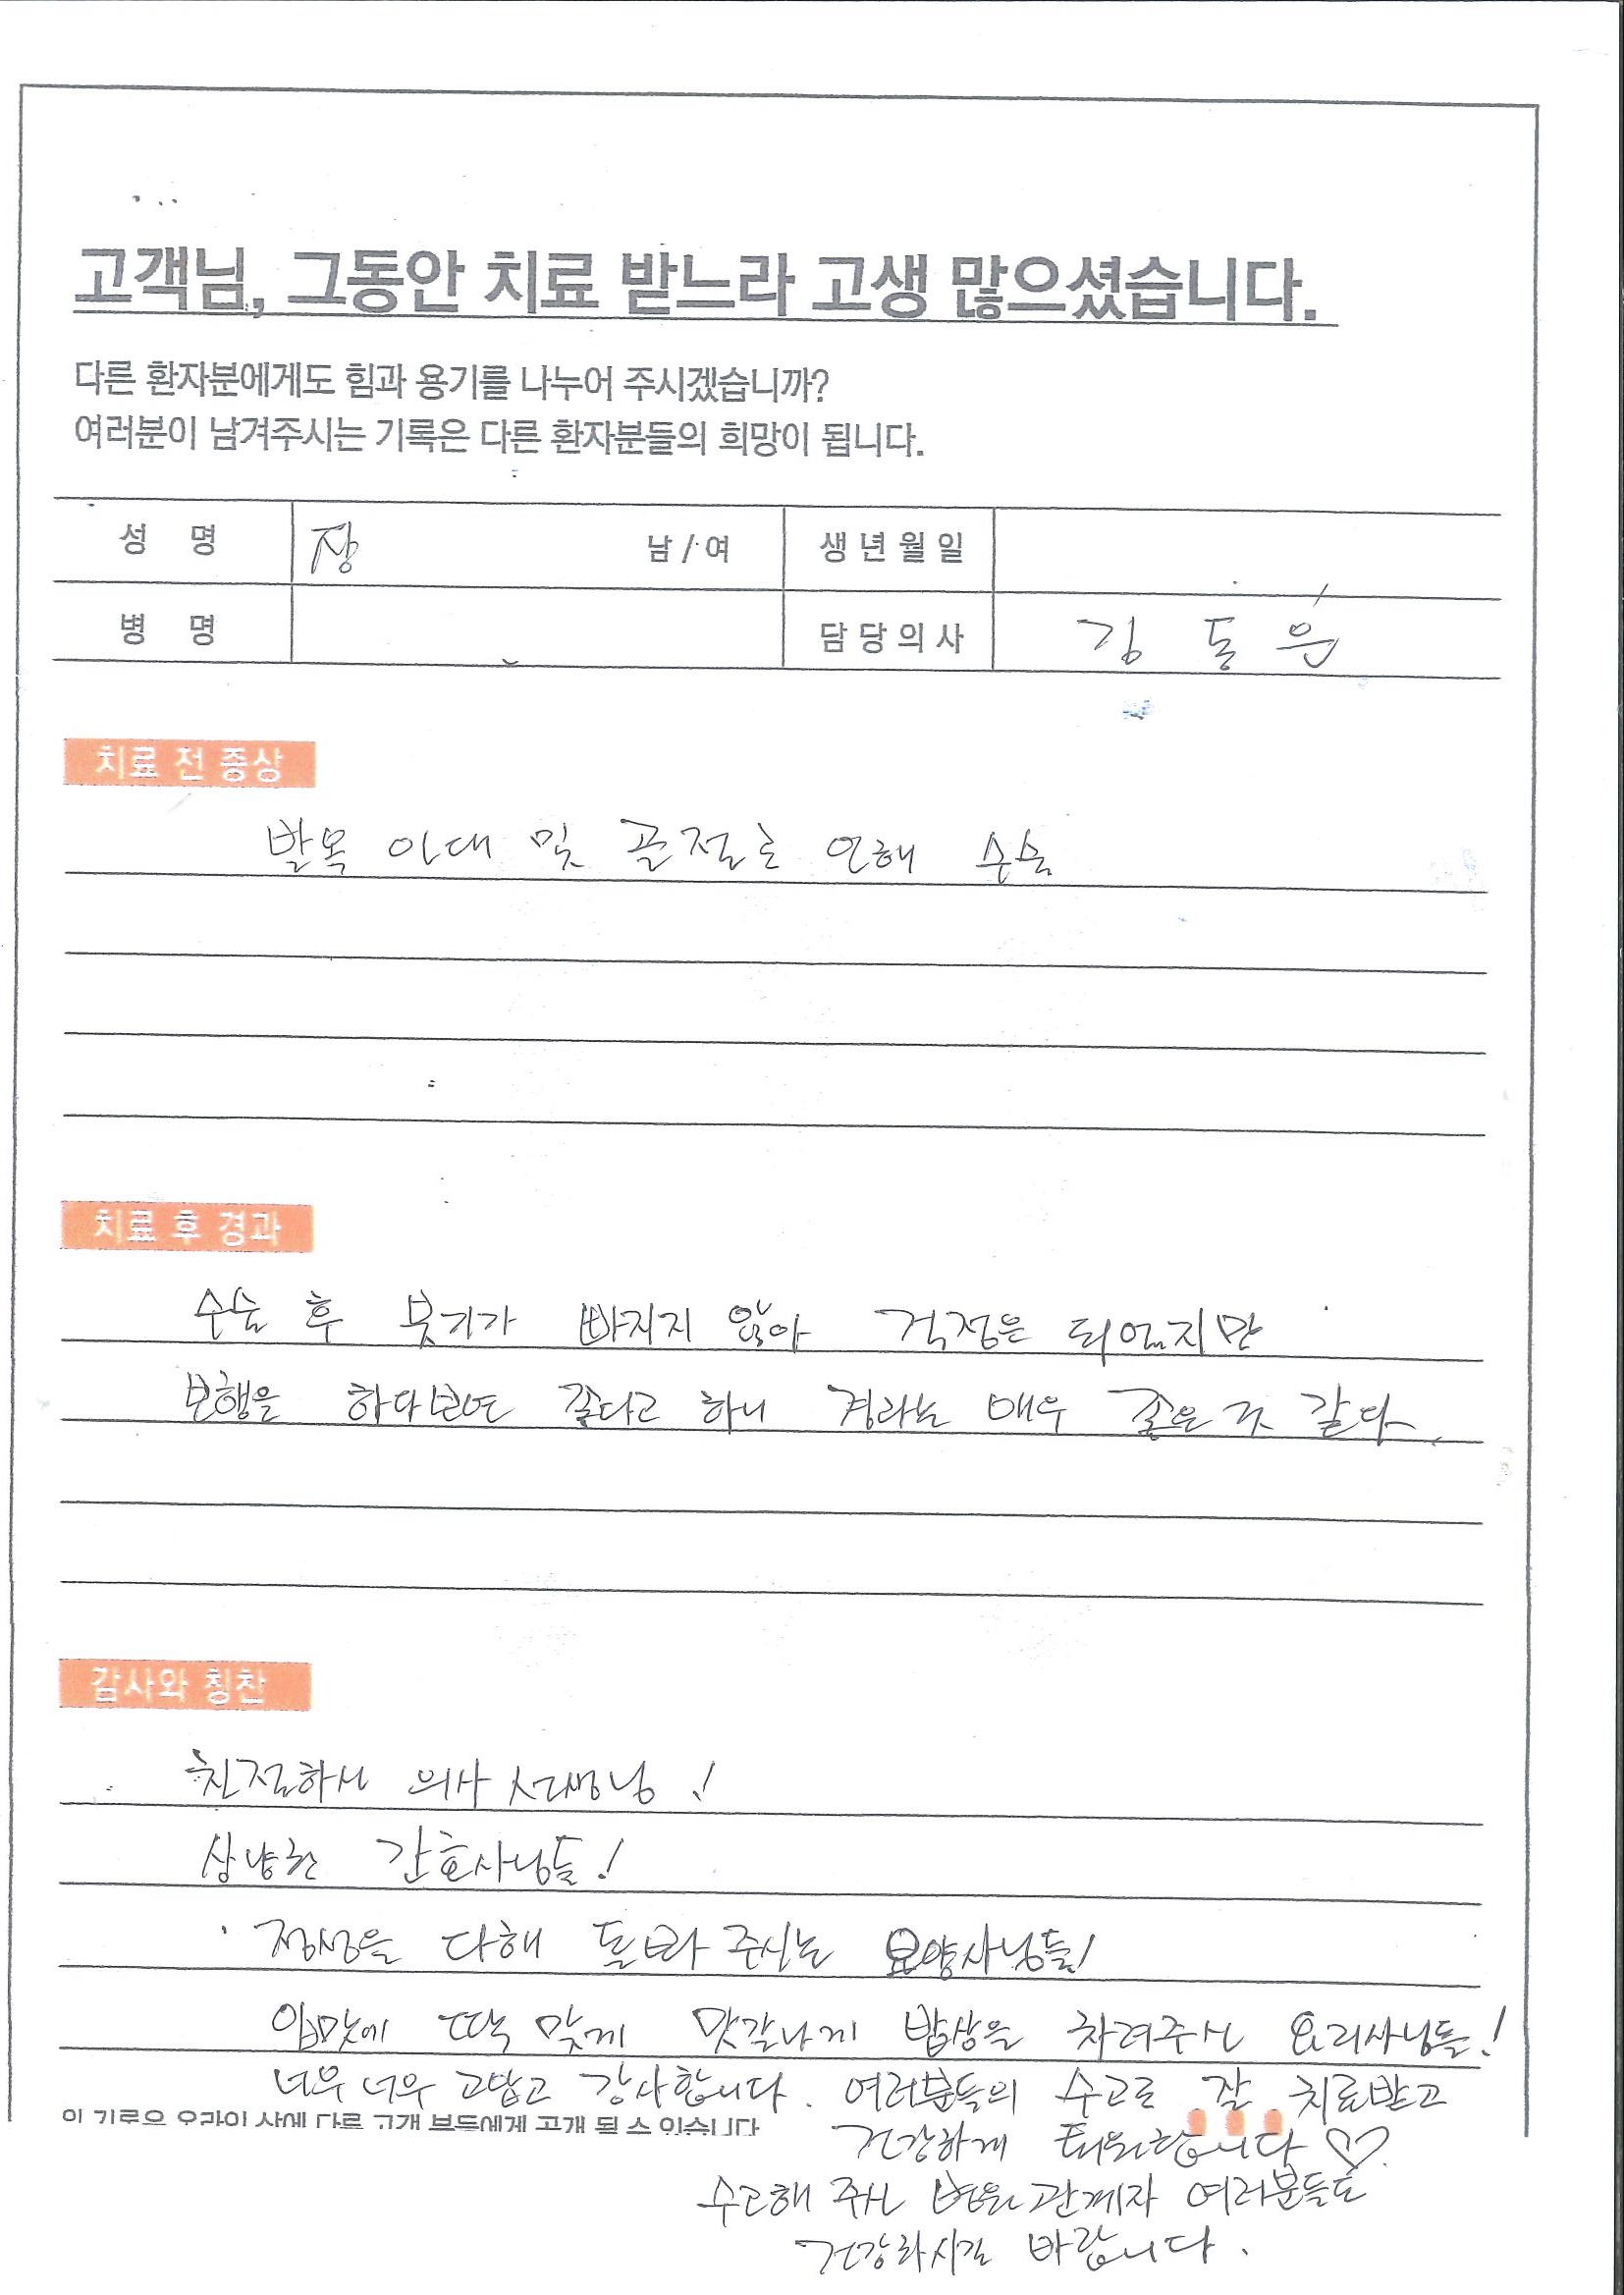 고객님, 그동안 치료 받느라 고생 많으셨습니다.
다른 환자분에게도 힘과 용기를 나누어 주시겠습니까?
여러분이 남겨주시는 기록은 다른 환자분들의 희망이 됩니다.
성 명 장 남 / 여 생년월일
병 명 담당의사 김 동 은
치료 전 증상
발목 인대 및 골절로 인해 수술
치료 후 경과
수술 후 붓기가 빠지지 않아 걱정은 되었지만
보행을 하다보면 좋다고 하니 경과는 매우 좋은 것 같다.
감사와 칭찬
친절하신 의사 선생님!
상냥한 간호사님들!
정성을 다해 돌봐 주시는 요양사님들!
입맛에 딱 맞게 맛갈나게 밥상을 차려주신 요리사님들!
너무 너무 고맙고 감사합니다. 여러분들의 수고로 잘 치료받고
이 기록은 온라인 상에 다른 고객 분들에게 공개 될 수 있습니다
건강하게 퇴원합니다♡
수고해 주신 병원 관계자 여러분들도
건강하시길 바랍니다.